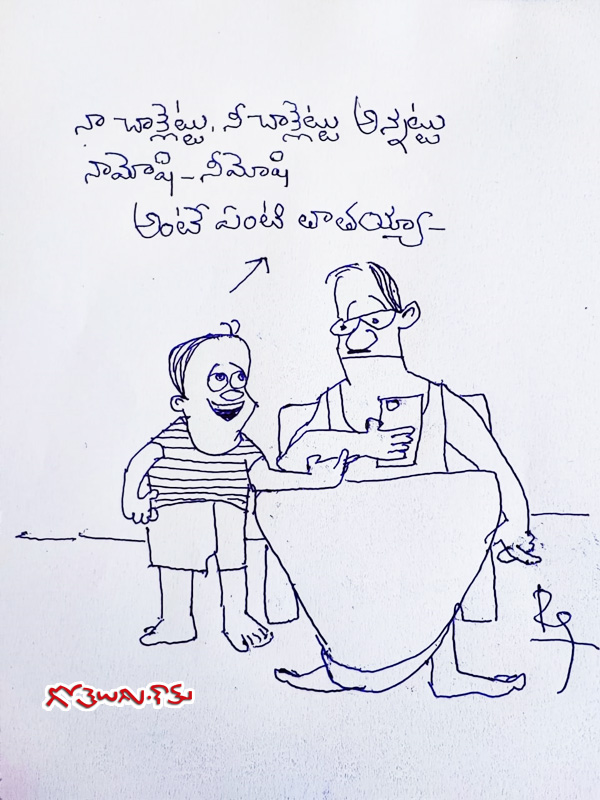 నా చాక్లెట్టు, నీ చాక్లెట్టు అన్నట్టు
నామోషి - నీమోషి
అంటే ఏంటి తాతయ్యా -
గోతెలుగు.కామ్